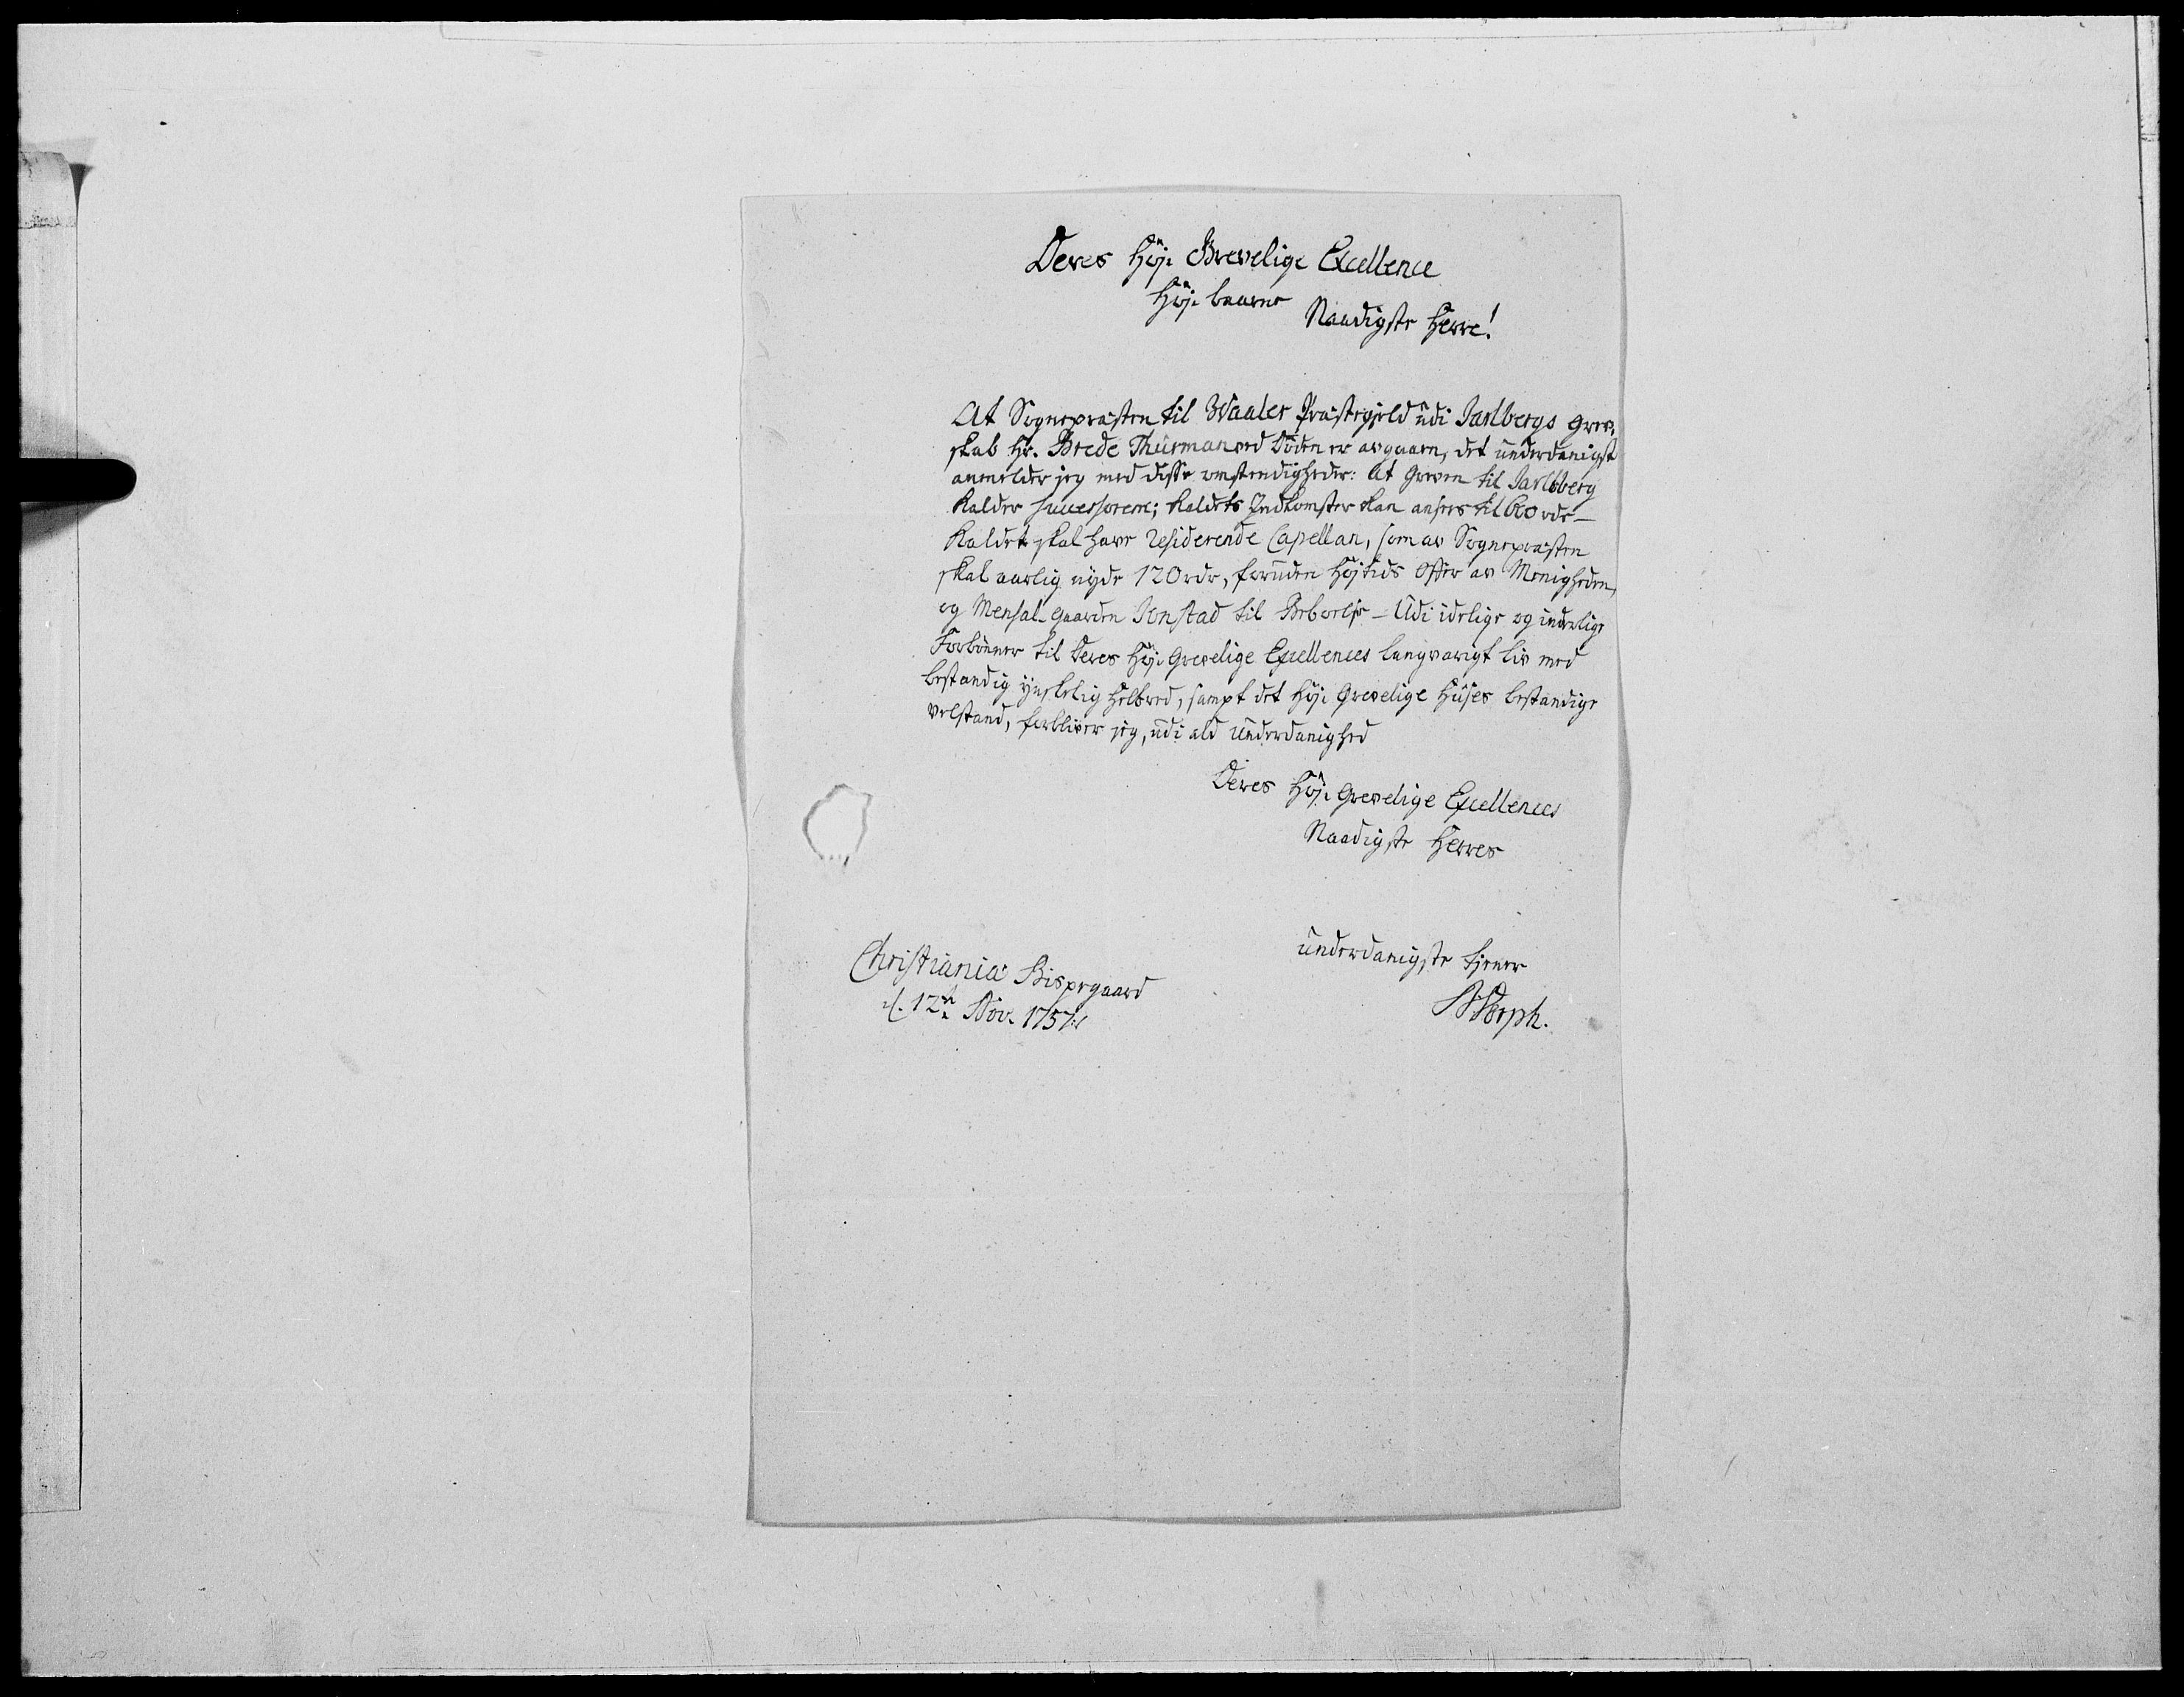 Deres Høj Grevelige Excellence
Høj baarne
Naadigste Herre!
At Sognepræsten til Waaler Præstegjeld udi Jarlbergs Grev,
skab Hr. Brede Thurman ved Døden er avgaaen, det underdanigst
anmelder jeg med disse omstendigheder: At Greven til Jarlsberg
kalder successorem; Kaldets Indkomster kan ansees til 600 rdr _
Kaldet skal have residerende Capellan, som av Sognepræsten
skal aarlig nyde 120 rdr, foruden Højtids Offer av Menigheden,
og Mensal-Gaarden Jonstad til Beboelse _ Udi idelige og inderlige
Forbønner til Deres Høj Grevelige Excellences langvarigt liv med
bestandig ynskelig Helbred, sampt det Høj Grevelige Huses bestandige
velstand, forbliver jeg, udi ald Underdanighed
Deres Høj Grevelige Excellences
Naadigste Herres
underdanigste tjener
Christiania Bispegaard
d. 12te Nov. 1757
Dorph.